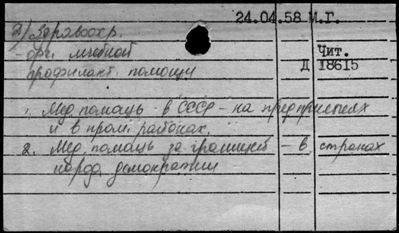 24.04.58 М.Г.
2) Здравоохр.
- орг. лечебной Чит.
профилакт. помощи Д 18615
1. Мед. помощь в СССР - на предприятиях
и в пром. районах.
2. Мед. помощь за границей - в странах
народ. демократии